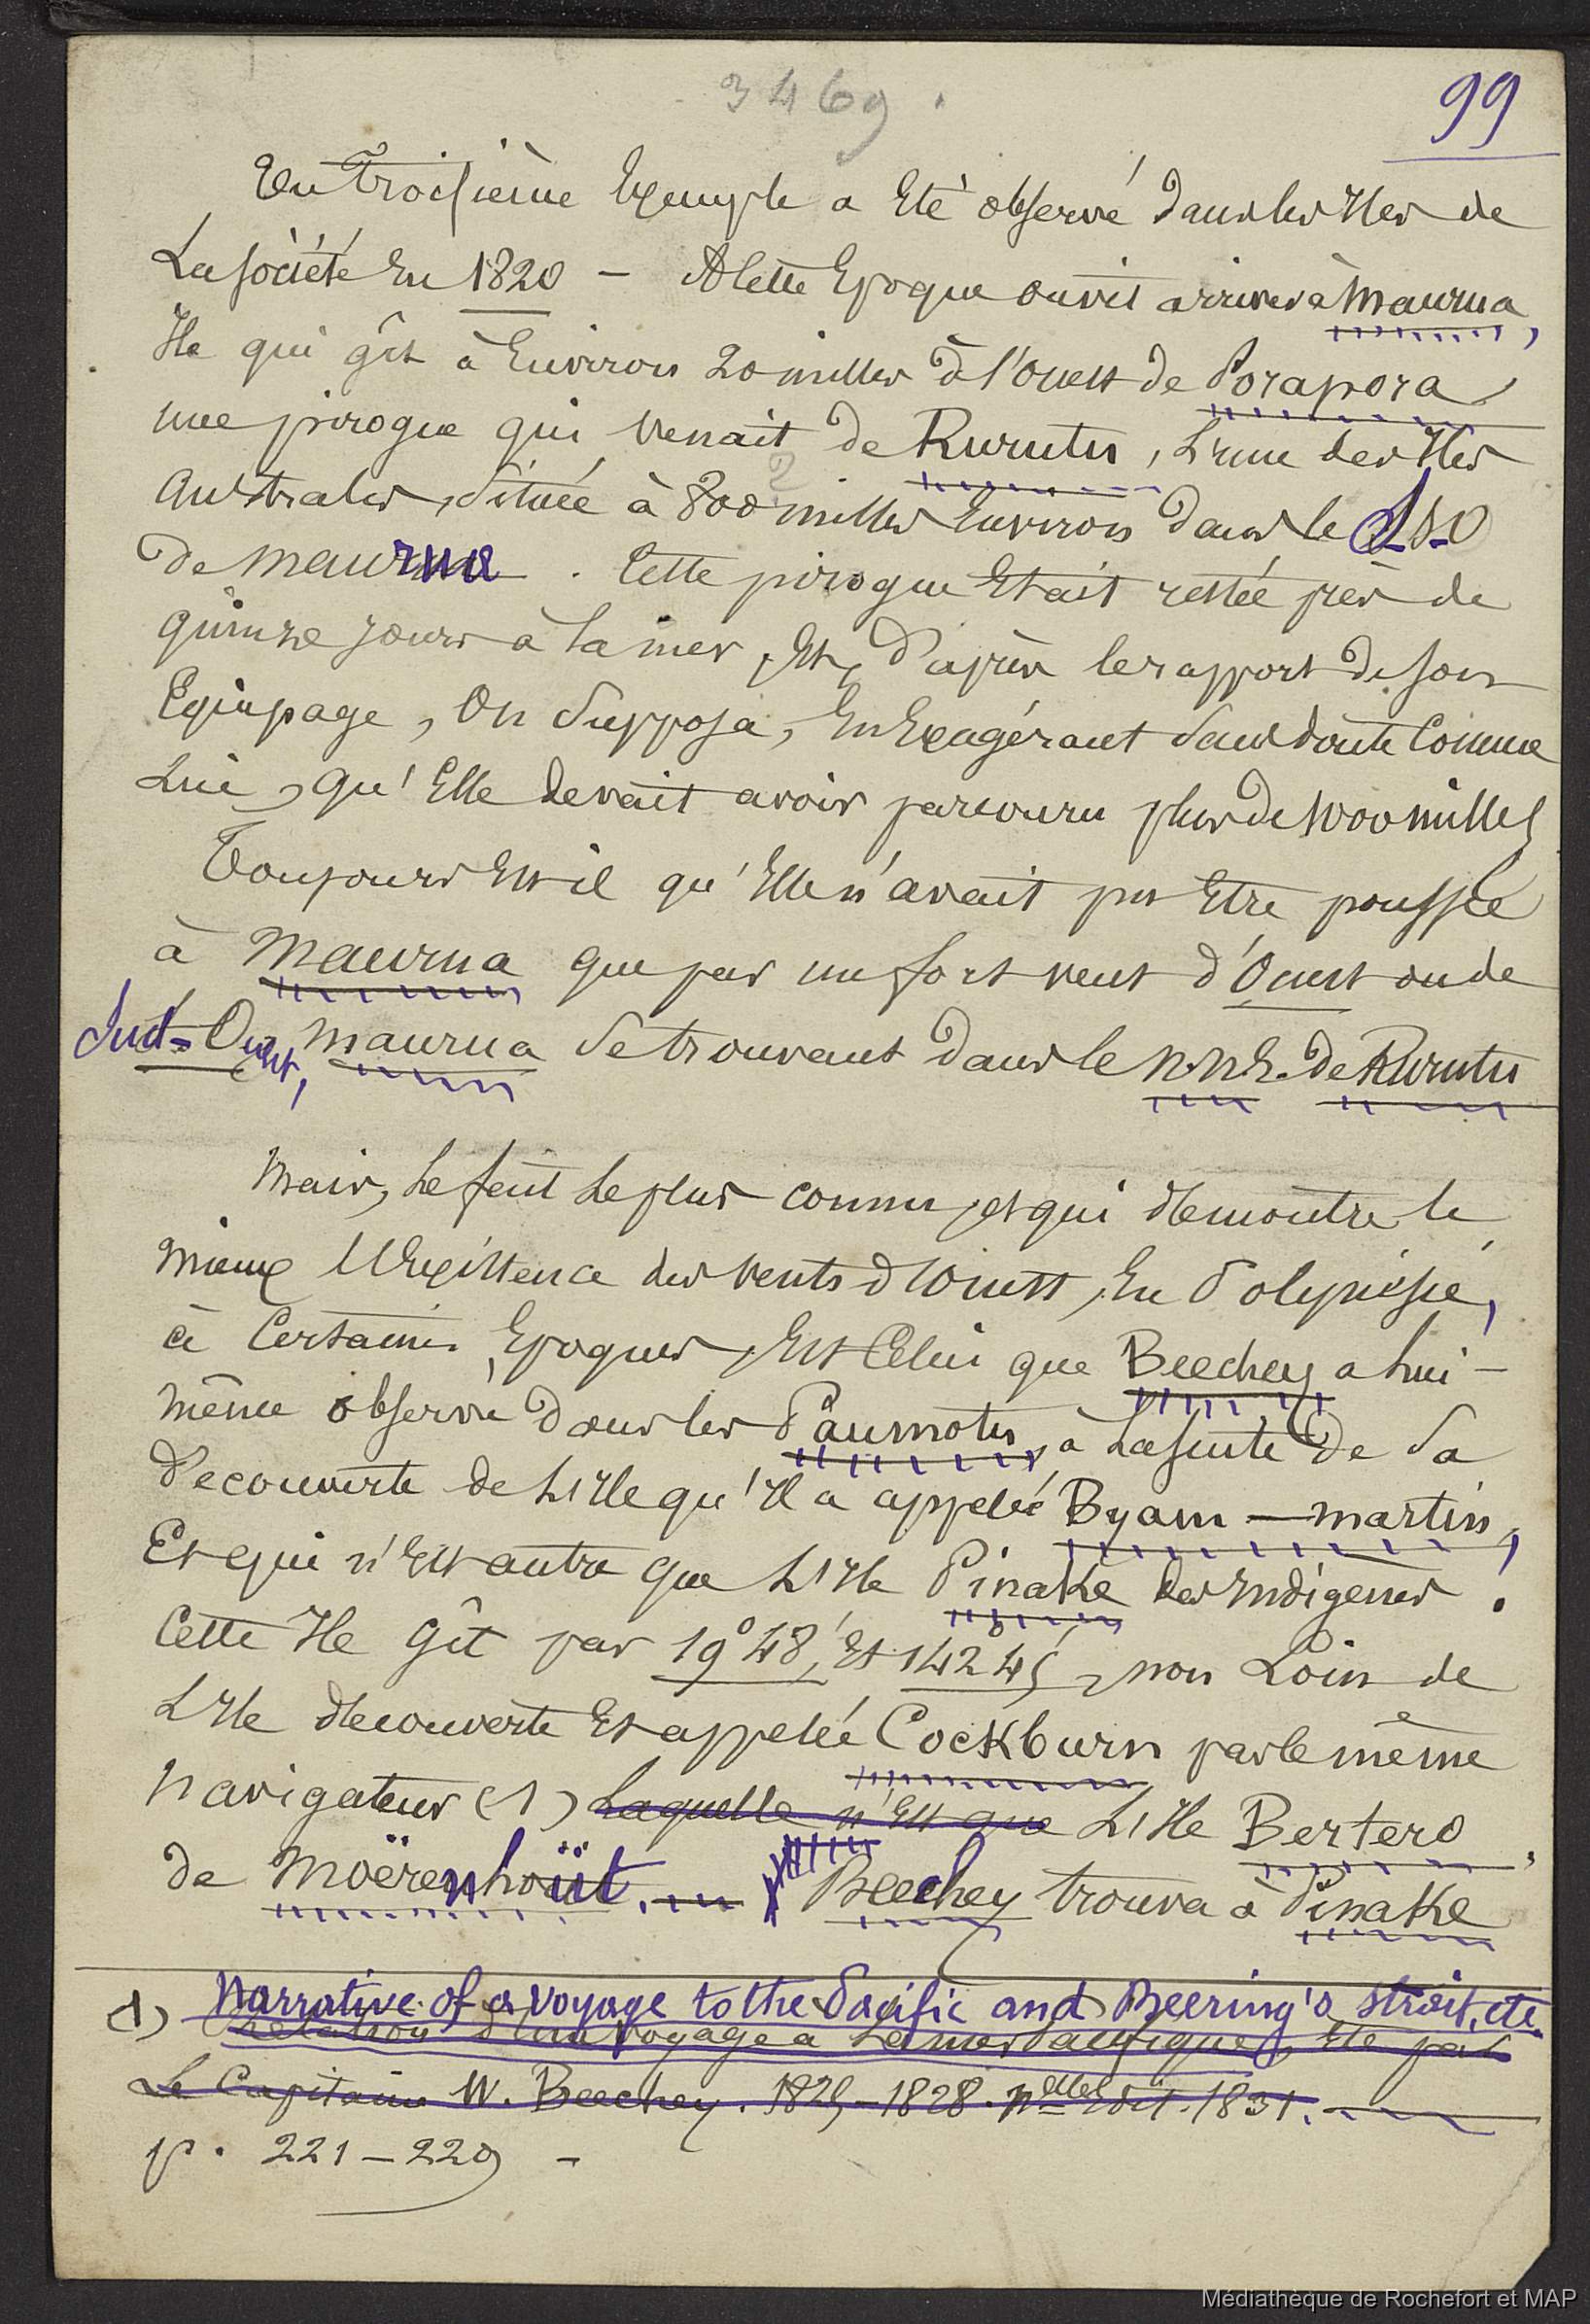 3469.
99
Un troisième exemple a été observé dans les Iles de
La société en 1820 – A cette époque on vit arriver à Maurua,
Ile qui gît à environ 20 milles à l'ouest de Porapora,
une pirogue qui venait de Rurutu, l'une des Iles
Australes, située à 800 milles environ dans le S.S.O
de Maurua. Cette pirogue était restée près de
quinze jours à la mer, et, d'après le rapport de son
Equipage, on supposa, en exagérant sans doute comme
Lui, qu'Elle devait avoir parcouru plus de 1000 milles
Toujours est-il qu'Elle n'avait pu être poussée
à Maurua que par un fort vent d'Ouest ou de
Sud-Ouest, Maurua se trouvant dans le N.N.E. de Rurutu
Mais, le fait le plus connu, et qui démontre le
mieux l'existence des vents d'Ouest, en Polynésie,
à certaines Epoques, est celui que Beechey a lui-
même observé dans les Paumotu, à la suite de sa
découverte de l'Ile qu'Il a appelée Byam-Martin,
Et qui n'est autre que l'Ile Pinake des Indigènes.
Cette Ile gît par 19° 48', et 142° 45', non loin de
L'Ile découverte et appelée Cockburn par le même
Navigateur (1) Laquelle n'est que L'Ile Bertero
de Moërenhoüt. — Beechey trouva à Pinake
(1) Narrative of a voyage to the Pacific and Beering's strait, etc.
Relation d'un voyage à la mer Pacifique, etc par
Le Capitaine W. Beechey. 1825–1828. nelle Edit. 1831.
p. 221–229 –
Médiathèque de Rochefort et MAP